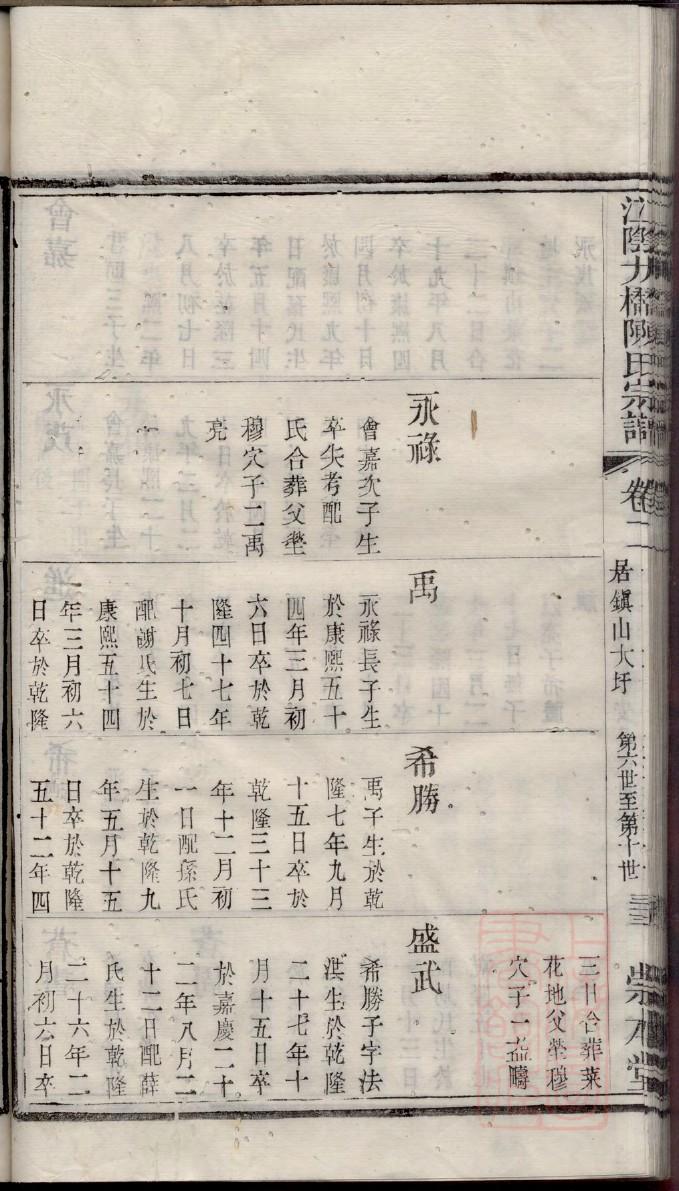 江陰九橋陳氏宗譜
卷二
居鎮山大圩
第六世至第十世
崇本堂
永祿
會嘉次子生
卒失考配
氏合葬父塋
穆穴子二禹
亮
禹
永祿長子生
於康熙五十
四年三月初
六日卒於乾
隆四十七年
十月初七日
配謝氏生於
康熙五十四
年三月初六
日卒於乾隆
希勝
禹子生於乾
隆七年九月
十五日卒於
乾隆三十三
年十二月初
一日配孫氏
生於乾隆九
年五月十五
日卒於乾隆
五十二年四
三日合葬菜
花地父塋穆
穴子一盐疇
盛武
希勝子字法
淇生於乾隆
二十七年十
月十五日卒
於嘉慶二十
二年八月二
十二日配薛
氏生於乾隆
二十六年二
月初六日卒